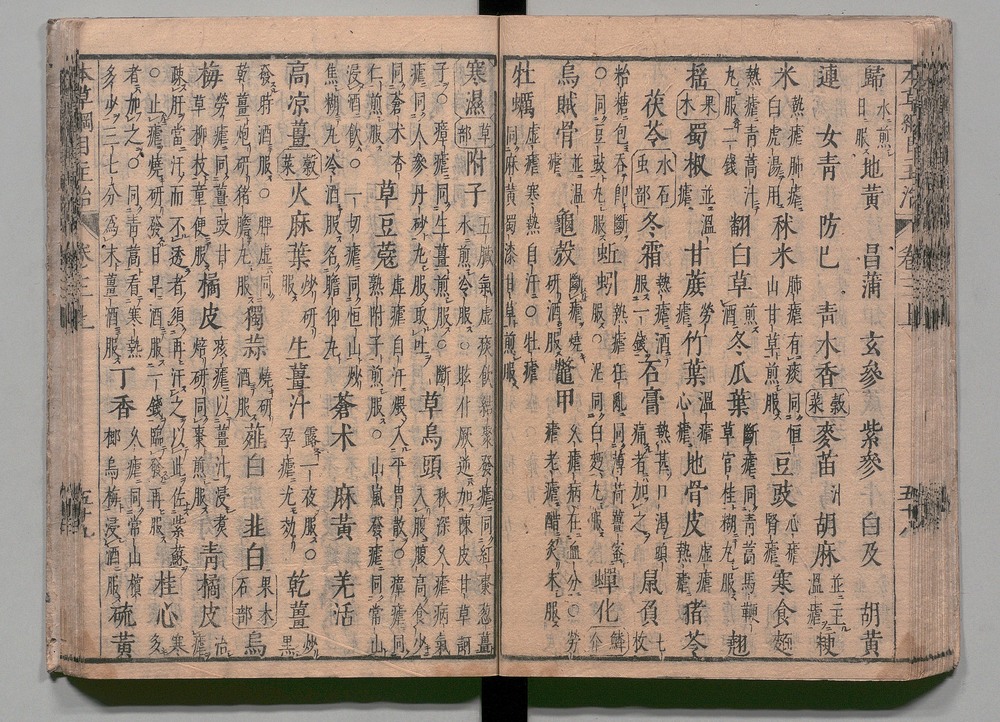 歸 水煎日服 地黃 昌蒲 玄參 紫參 白及 胡黃
連 女青 防巳 青木香 穀菜 麥苗 汁 胡麻 並主溫瘧 粳
米 熱瘧肺瘧白虎湯用 秫米 肺瘧有痰同恒山甘草煎服 豆豉 心瘧腎瘧 寒食麪
熱瘧青蒿汁丸服一錢 翻白草 煎酒 冬瓜葉 斷瘧同青蒿馬鞭草官桂糊丸服 翹
搖 果木 蜀椒 並溫瘧 甘蔗 勞瘧 竹葉 溫瘧心瘧 地骨皮 虛瘧熱瘧 猪苓
茯苓 水石虫部 冬霜 熱瘧酒服一錢 石膏 熱甚口渴頭痛者加之 鼠負 七枚
粉糖包吞即斷○同豆豉丸服 蚯蚓 熱瘧狂亂同薄荷薑蜜服○泥同白麪丸服 蟬化 鱗介
烏賊骨 並溫瘧 龜殼 斷瘧燒研酒服 鼈甲 久瘧病在血分○勞瘧老瘧醋炙末服
牡蠣 虛瘧寒熱自汗○牡瘧同麻黃蜀漆甘草煎服
寒濕 草部 附子 五臟氣虛痰飲結聚發瘧同紅棗葱薑水煎冷服○眩仆厥逆加陳皮甘草訶
子○瘴瘧同生薑煎服○斷瘧同人參丹砂丸服取吐 草烏頭 秋深久瘧病氣入腹腹高食少
同蒼朮杏仁煎服 草豆蔻 虛瘧自汗煨入平胃散○瘴瘧同熟附子煎服○山嵐發瘧同常山
浸酒飲○一切瘧同恒山炒焦糊丸冷酒服名瞻仰丸 蒼朮 麻黃 羌活
高涼薑 穀菜 火麻葉 炒研服 生薑汁 露一夜服○孕瘧尤效 乾薑 炒黑
發時酒服○脾虛同乾薑炮研猪膽丸服 獨蒜 燒研酒服 薤白 韭白 果木石部 烏
梅 勞瘧同薑豉甘草柳枝童便服 橘皮 痎瘧以薑汁浸煮焙研同棗煎服 青橘皮 治瘧
疎肝當汗而不透者須再汗之以此佐紫蘇○止瘧燒研發日早酒服一錢臨發再服 桂心 寒多
者加之○同青蒿看寒熱多少三七分爲末薑酒服 丁香 久瘧同常山檳榔烏梅浸酒服 硫黃